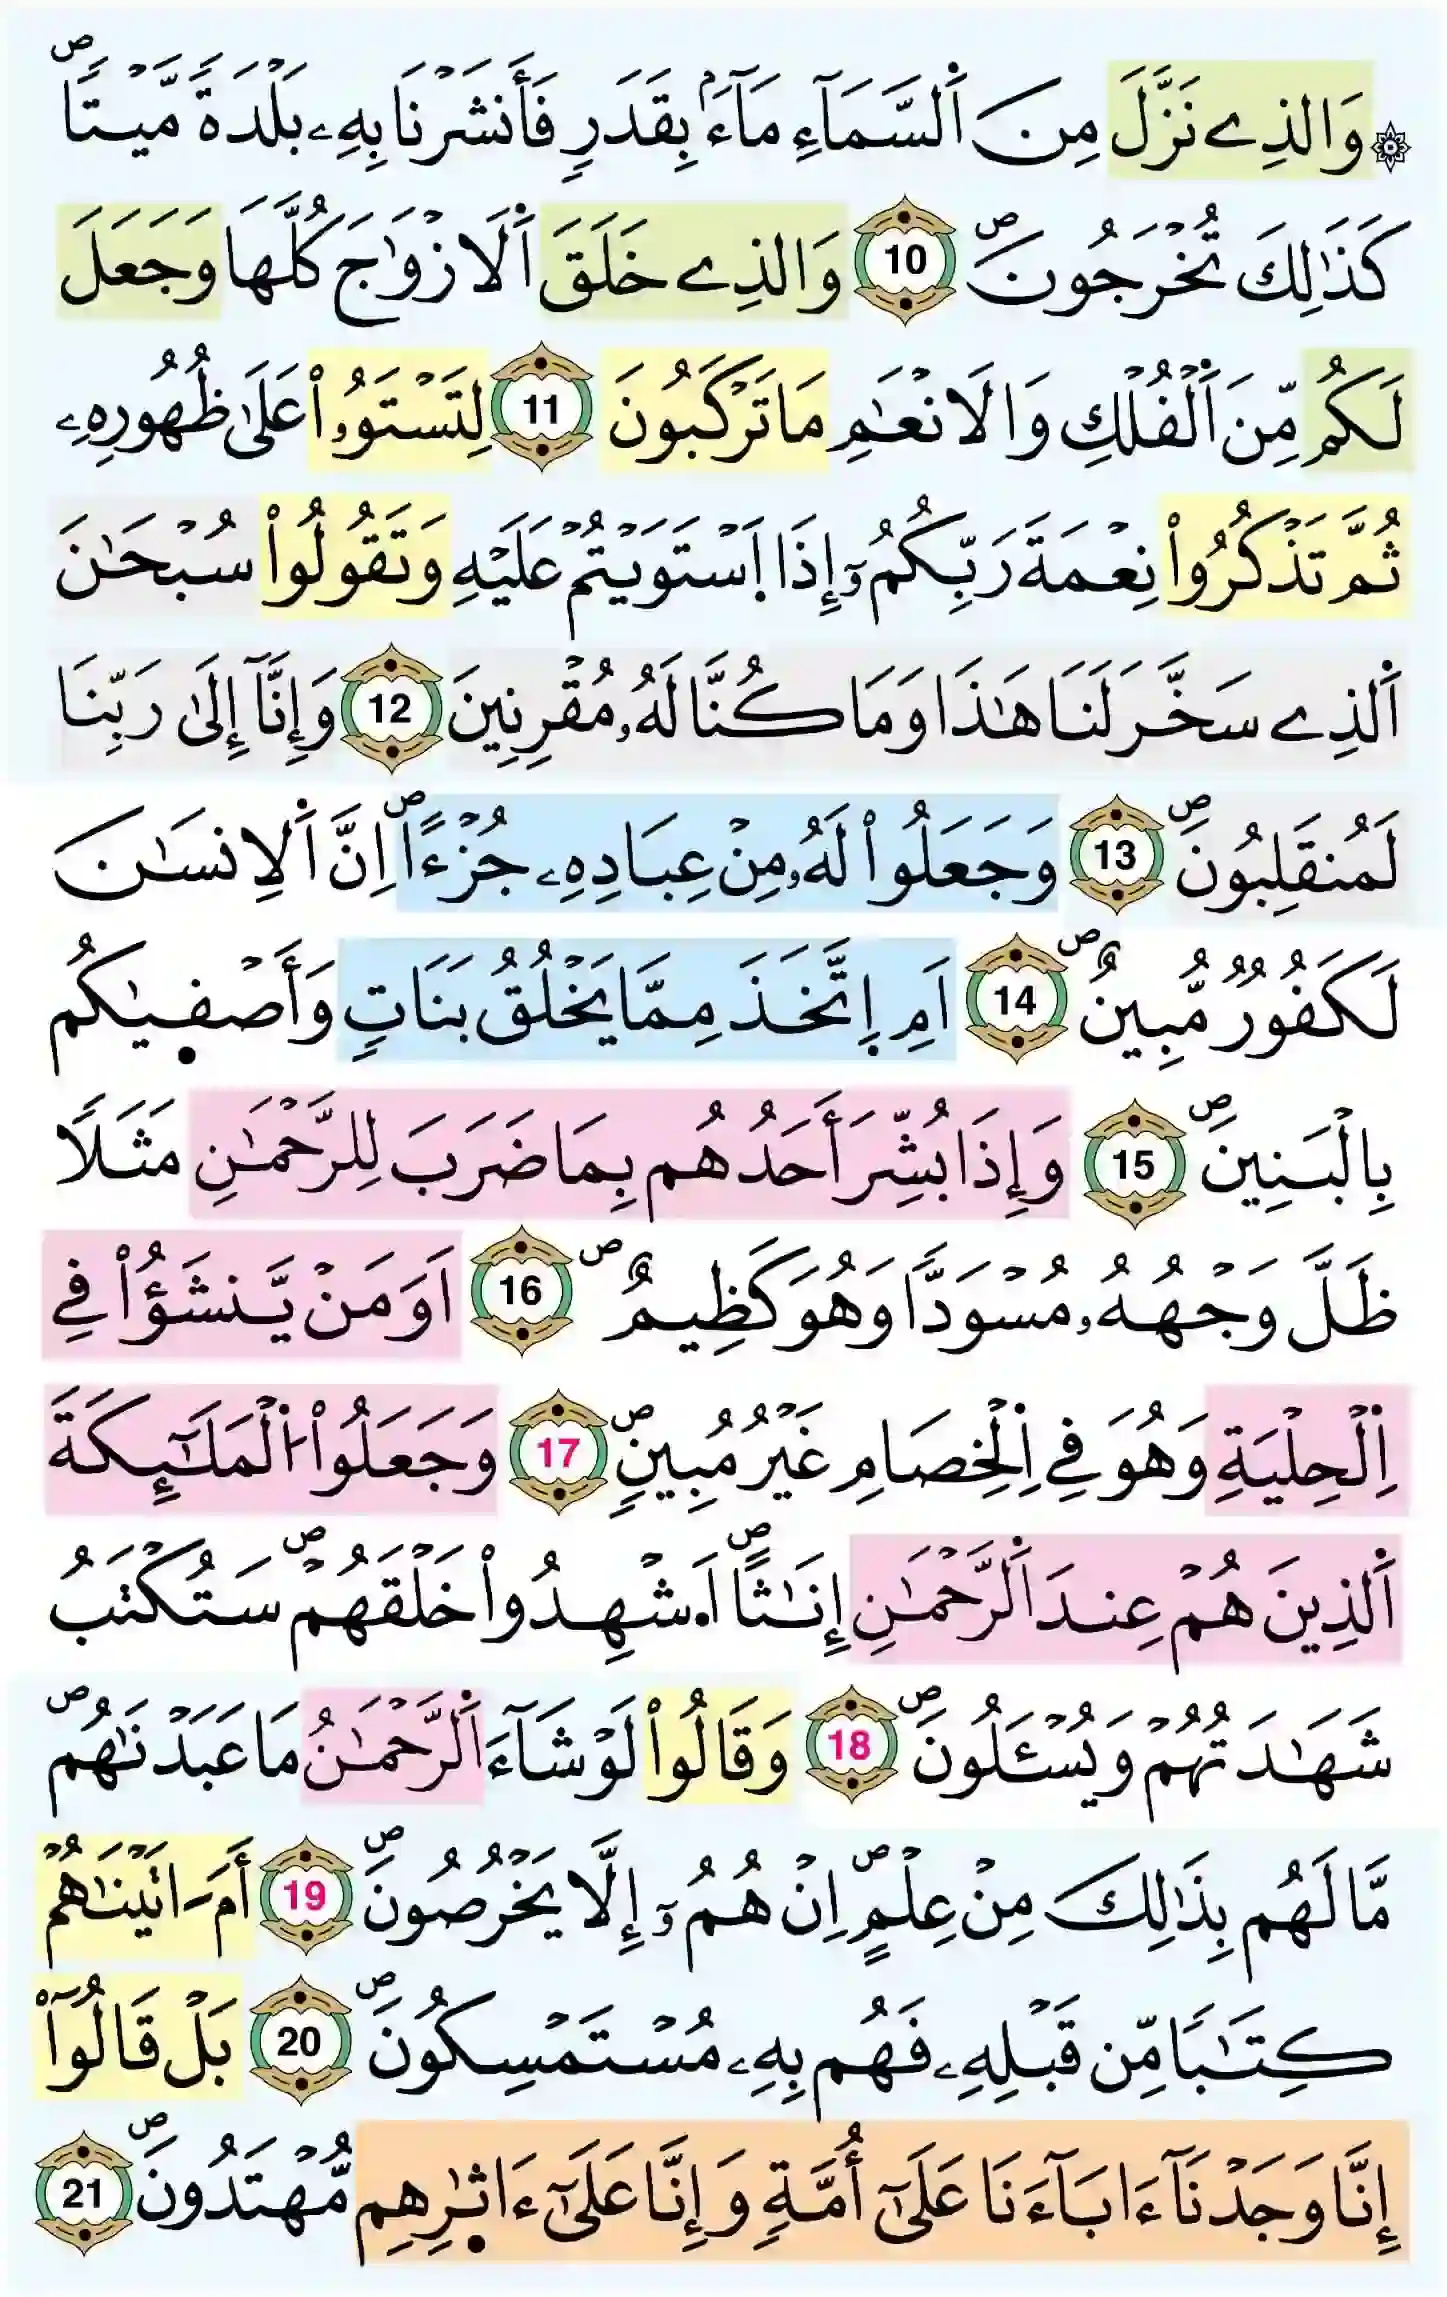 ۞ وَالذِے نَزَّلَ مِنَ اَ۬لسَّمَآءِ مَآءَۢ بِقَدَرٖ فَأَنشَرْنَا بِهِۦ بَلْدَةٗ مَّيْتاٗۖ
كَذَٰلِكَ تُخْرَجُونَۖ 10 وَالذِے خَلَقَ اَ۬لَازْوَٰجَ كُلَّهَا وَجَعَلَ
لَكُم مِّنَ اَ۬لْفُلْكِ وَالَانْعَٰمِ مَا تَرْكَبُونَ 11 لِتَسْتَوُۥاْ عَلَىٰ ظُهُورِهِۦ
ثُمَّ تَذْكُرُواْ نِعْمَةَ رَبِّكُمُۥٓ إِذَا اَ۪سْتَوَيْتُمْ عَلَيْهِ وَتَقُولُواْ سُبْحَٰنَ
اَ۬لذِے سَخَّرَ لَنَا هَٰذَا وَمَا كُنَّا لَهُۥ مُقْرِنِينَ 12 وَإِنَّآ إِلَىٰ رَبِّنَا
لَمُنقَلِبُونَۖ 13 وَجَعَلُواْ لَهُۥ مِنْ عِبَادِهِۦ جُزْءاًۖ اِنَّ اَ۬لِانسَٰنَ
لَكَفُورٞ مُّبِينٌۖ 14 اَمِ اِ۪تَّخَذَ مِمَّا يَخْلُقُ بَنَاتٖ وَأَصْفٜيٰكُم
بِالْبَنِينَۖ 15 وَإِذَا بُشِّرَ أَحَدُهُم بِمَا ضَرَبَ لِلرَّحْمَٰنِ مَثَلاٗ
ظَلَّ وَجْهُهُۥ مُسْوَدّاٗ وَهُوَ كَظِيمٌۖ 16 اَوَمَنْ يَّنشَؤُاْ فِے
اِ۬لْحِلْيَةِ وَهُوَ فِے اِ۬لْخِصَامِ غَيْرُ مُبِينٖۖ 17 وَجَعَلُواْ اُ۬لْمَلَٰٓئِكَةَ
اَ۬لذِينَ هُمْ عِندَ اَ۬لرَّحْمَٰنِ إِنَٰثاًۖ اَ۟شْهِدُواْ خَلْقَهُمْۖ سَتُكْتَبُ
شَهَٰدَتُهُمْ وَيُسْـَٔلُونَۖ 18 وَقَالُواْ لَوْ شَآءَ اَ۬لرَّحْمَٰنُ مَا عَبَدْنَٰهُمۖ
مَّا لَهُم بِذَٰلِكَ مِنْ عِلْمٍۖ اِنْ هُمُۥٓ إِلَّا يَخْرُصُونَۖ 19 أَمَ اٰتَيْنَٰهُمْ
كِتَٰباٗ مِّن قَبْلِهِۦ فَهُم بِهِۦ مُسْتَمْسِكُونَۖ 20 بَلْ قَالُوٓاْ
إِنَّا وَجَدْنَآ ءَابَآءَنَا عَلَىٰٓ أُمَّةٖ وَإِنَّا عَلَىٰٓ ءَاثٰٜرِهِم مُّهْتَدُونَۖ 21